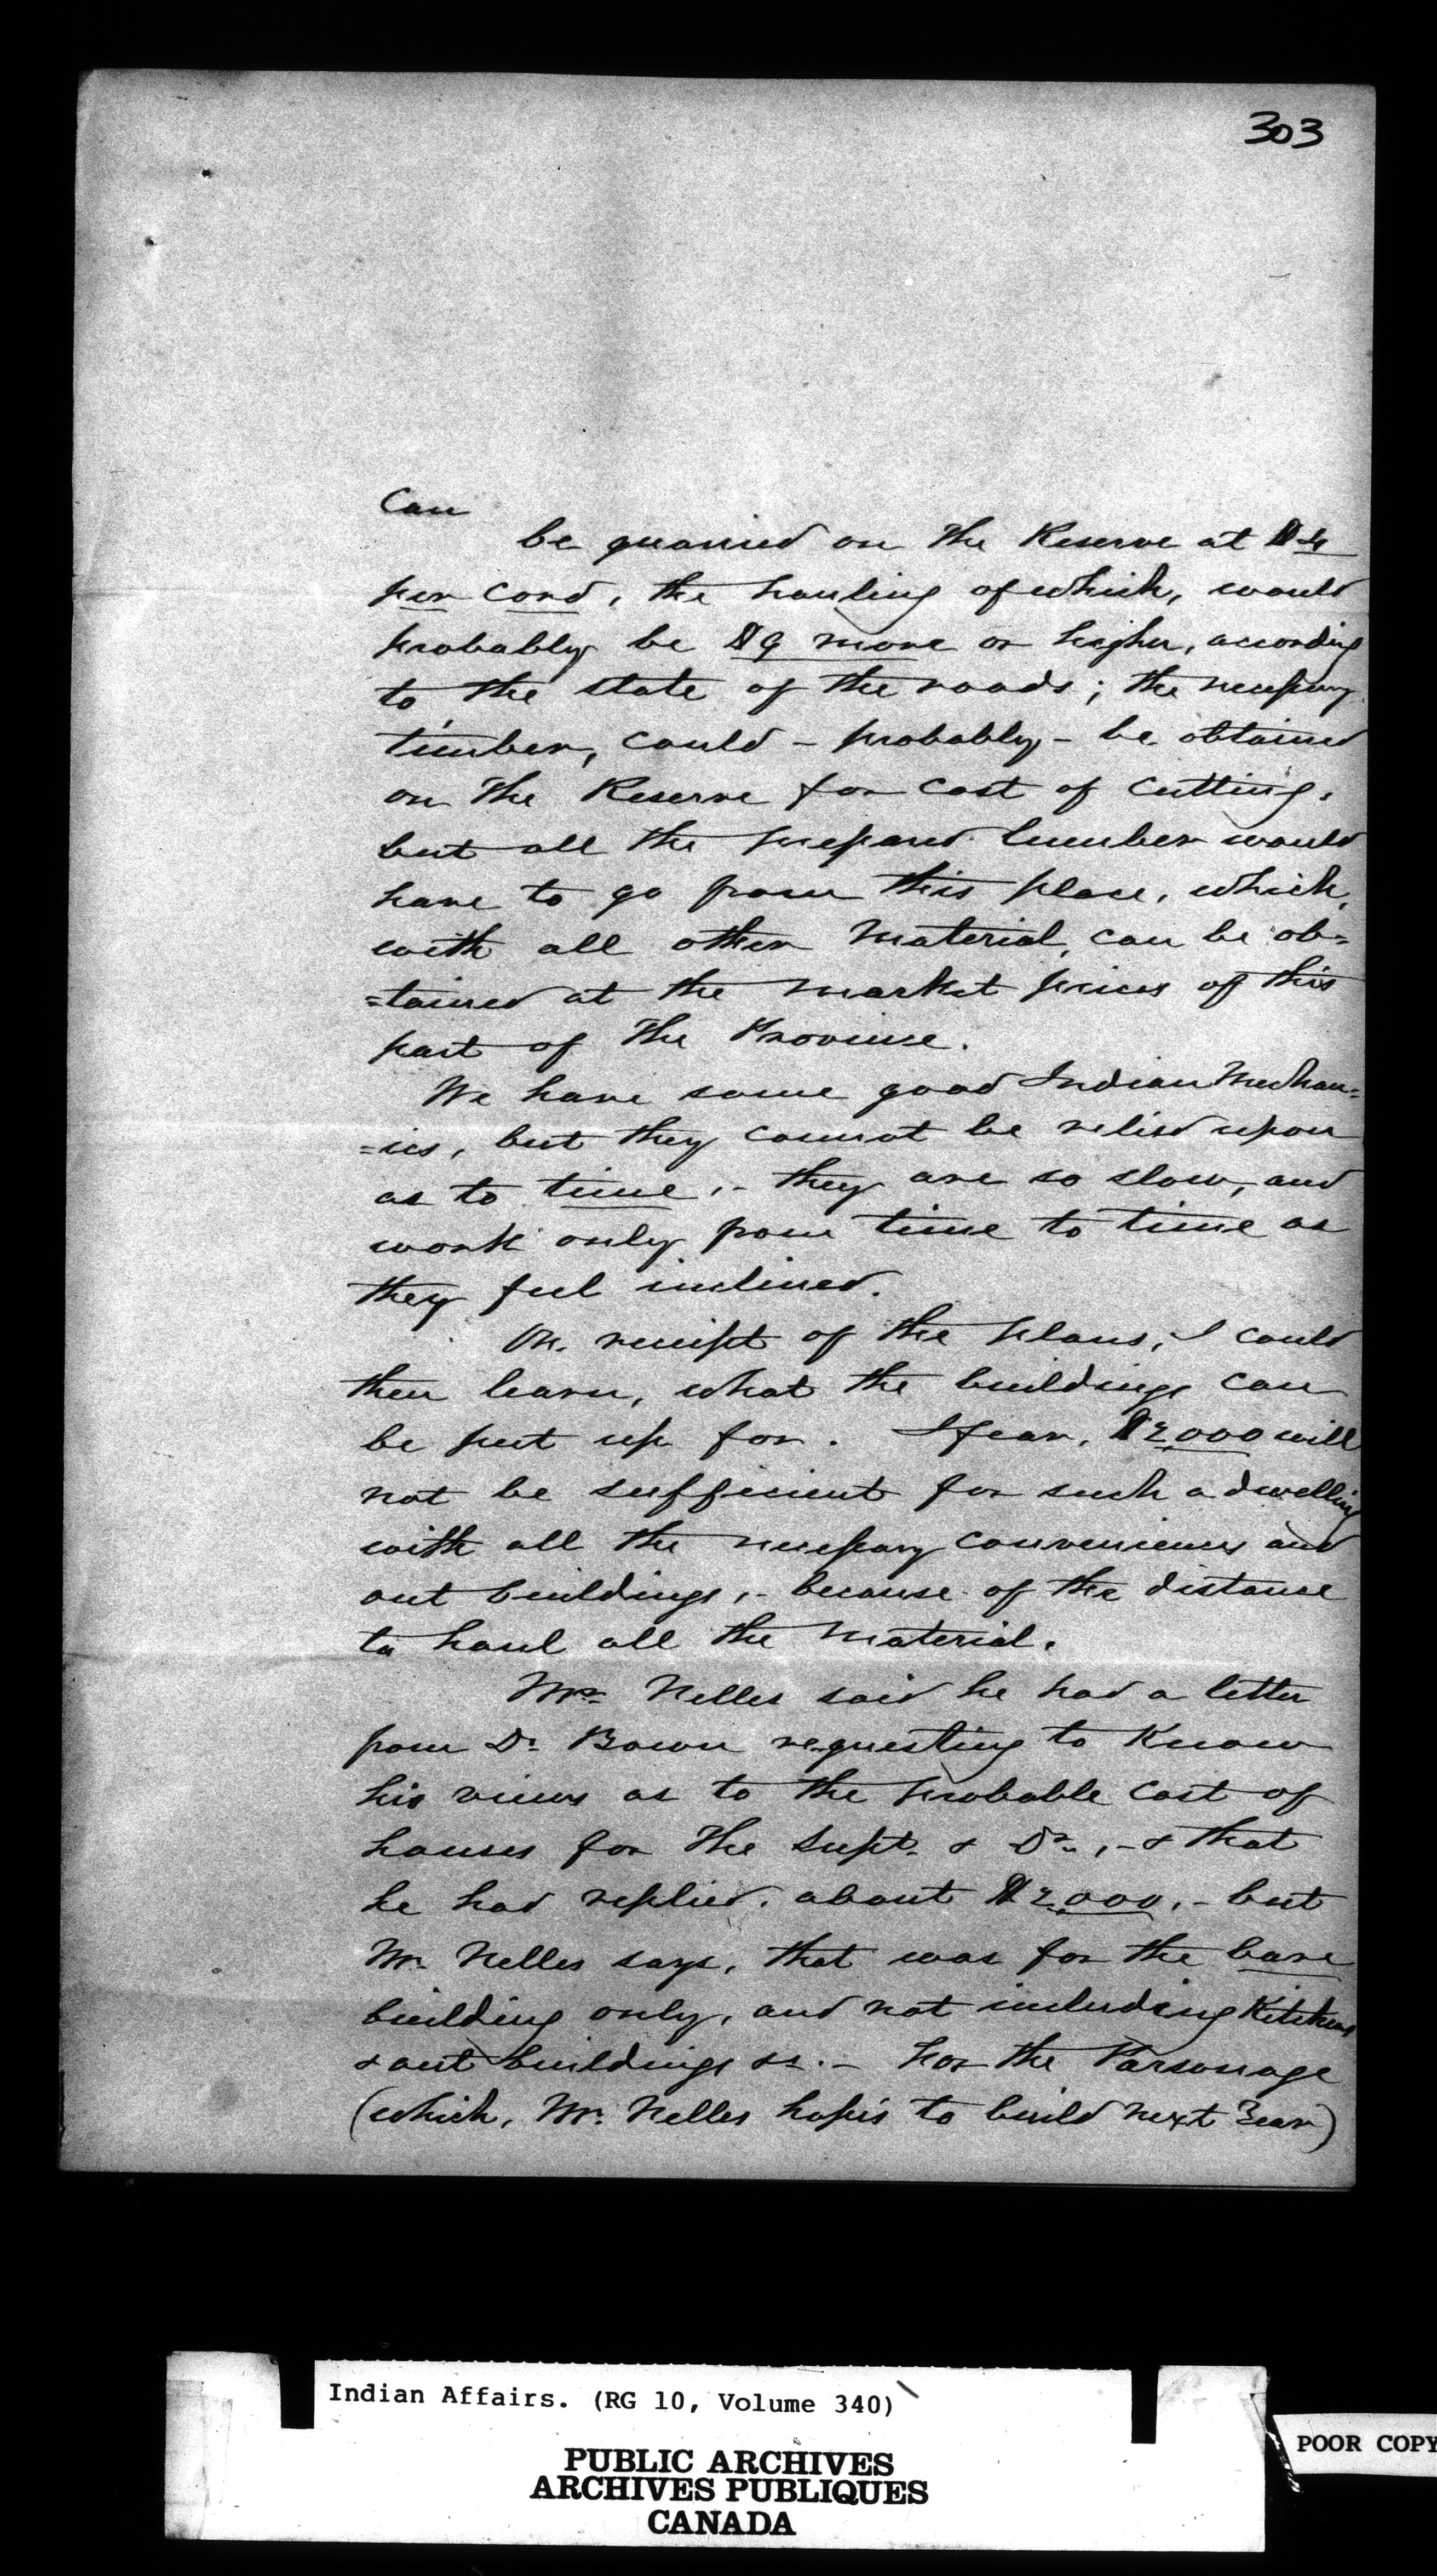 303
Can
be quarried on the Reserve at $4
per cord, the hauling of which, would
probably be $9 more or higher, according
to the state of the roads; the necessary
timber, could - probably - be obtained
on the Reserve for cost of cutting,
but all the prepared lumber would
have to go from this place, which,
with all other material, can be ob=
=tained at the market prices of this
part of the Province.
We have some good Indian Mechan=
=ics, but they cannot be relied upon
as to time, - they are so slow, and
work only from time to time as
they feel inclined.
On receipt of the plans, I could
then learn, what the buildings can
be put up for. I fear, $2,000 will
not be sufficient for such a dwelling
with all the necessary conveniences and
out buildings, - because of the distance
to haul all the material.
Mr. Nelles said he had a letter
from Dr. Bown requesting to know
his views as to the probable cost of
houses for the Supt. & Dr., - & that
he had replied, about $2,000, - but
Mr. Nelles says, that was for the bare
building only, and not including Kitchens
& out buildings &c. - For the Parsonage
(which, Mr. Nelles hopes to build next Year)
Indian Affairs. (RG 10, Volume 340)
PUBLIC ARCHIVES
ARCHIVES PUBLIQUES
CANADA
POOR COPY